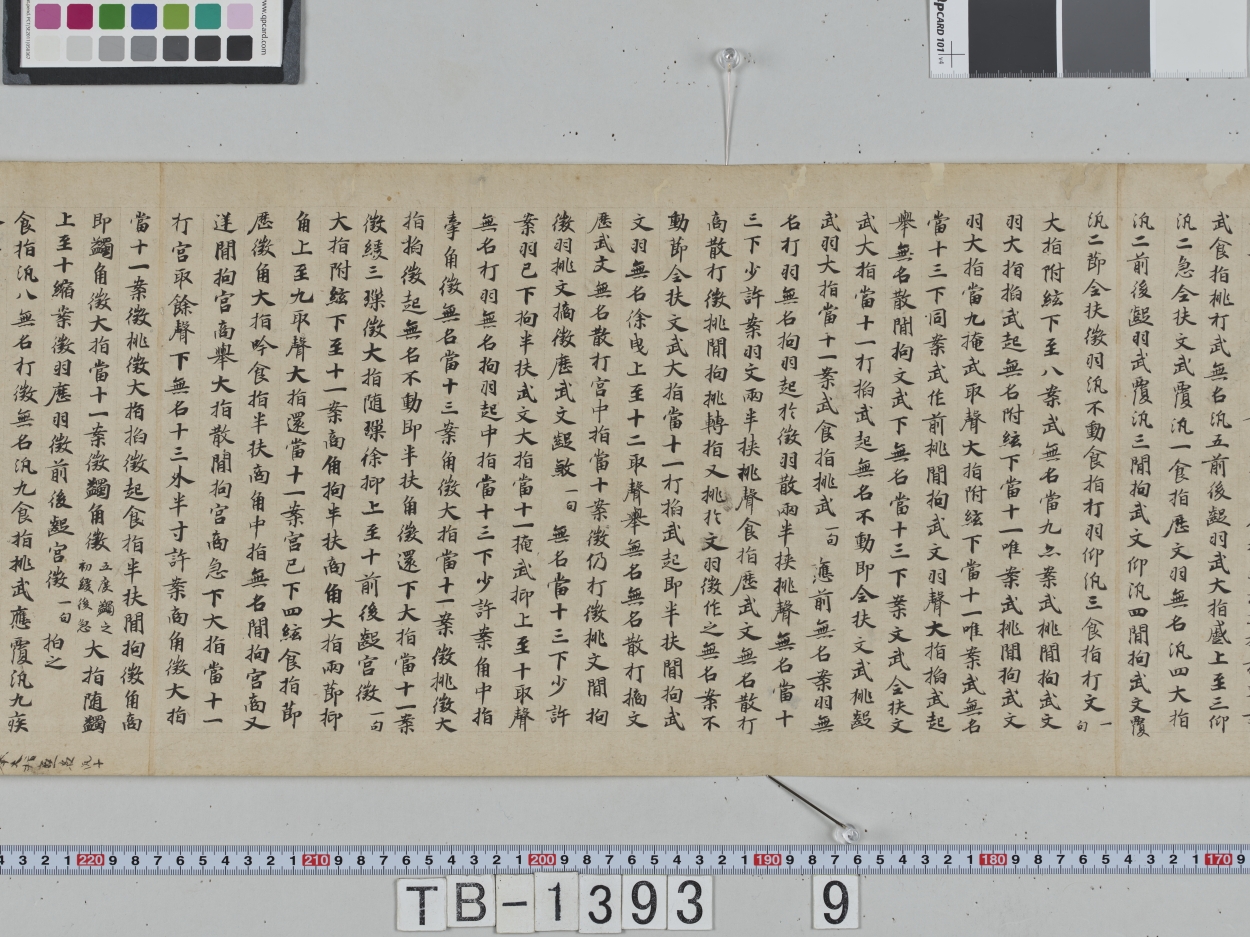 武食指挑打武無名汎五前後齪羽武大指慼上至三仰
汎二急全扶文武覆汎一食指歴文羽無名汎四大指
汎二前後齪羽武覆汎三間拘武文仰汎四間拘武文覆
汎二節全扶徴羽汎不動食指打羽仰汎三食指打文一句
大指附絃下至八案武無名當九亦案武挑間拘武文
羽大指掐武起無名附絃下當十一唯案武挑間拘武文
羽大指當九掩武取聲大指附絃下當十一唯案武無名
當十三下同案武作前挑間拘武文羽聲大指掐武起
舉無名散間拘文武下無名當十三下案文武全扶文
武大指當十一打掐武起無名不動即全扶文武挑齪
武羽大指當十一案武食指挑武一句應前無名案羽無
名打羽無名拘羽起於徴羽散兩半扶挑聲無名當十
三下少許案羽文兩半扶挑聲食指歴武文無名散打
商散打徴挑間拘挑轉指又挑於文羽徴作之無名案不
動節全扶文武大指當十一打掐武起即半扶間拘武
文羽無名徐曳上至十二取聲舉無名無名散打擿文
歴武文無名散打宮中指當十案徴仍打徴挑文間拘
徴羽挑文擿徴歴武文齪敏一句無名當十三下少許
案羽已下拘半扶武文大指當十一掩武抑上至十取聲
無名打羽無名拘羽起中指當十三下少許案角中指
牽角徴無名當十三案角徴大指當十一案徴挑徴大
指掐徴起無名不動即半扶角徴還下大指當十一案
徴緩三㻎徴大指随㻎徐抑上至十前後齪宮徴一句
大指附絃下至十一案商角拘半扶商角大指兩節抑
角上至九取聲大指還當十一案宮已下四絃食指節
歴徴角大指吟食指半扶商角中指無名間拘宮商又
送間拘宮商舉大指散間拘宮商急下大指當十一
打宮取餘聲下無名十三外半寸許案商角徴大指
當十一案徴挑徴大指掐徴起食指半扶間拘徴角商
即蠲角徴大指當十一案徴蠲角徴五度蠲之初緩後急大指随蠲
上至十縮案徴羽歴羽徴前後齪宮徴一句拍之
食指汎八無名打徴無名汎九食指挑武應覆汎九疾
www.qpcard.com
QPCARD 101 v4
TB-1393 9